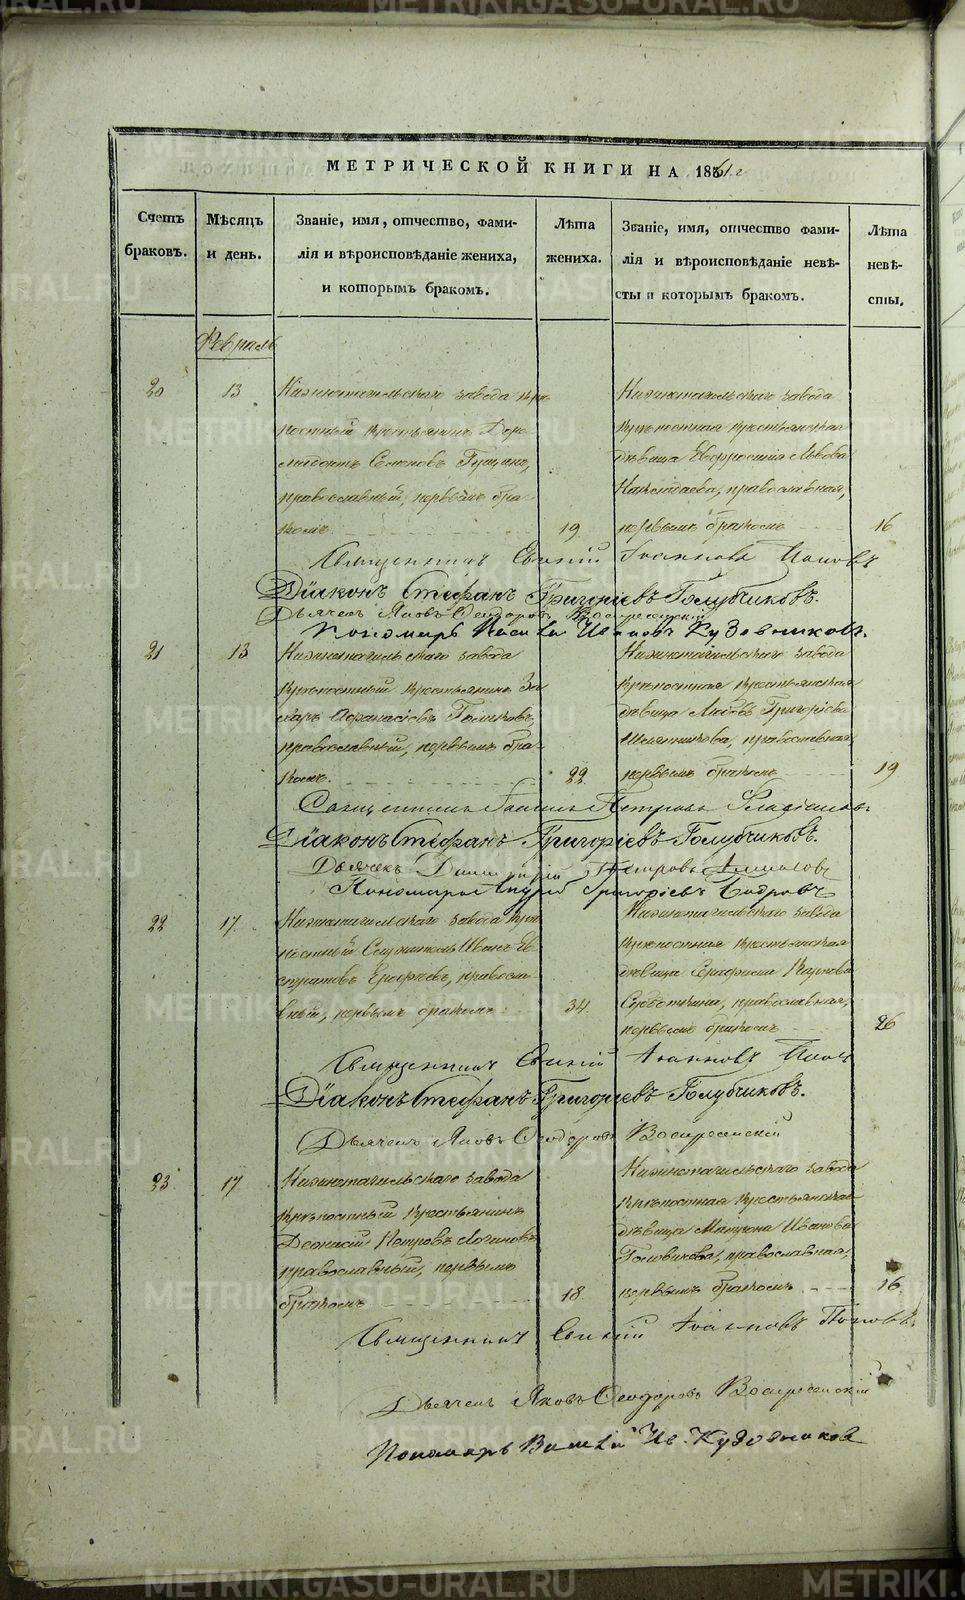 МЕТРИЧЕСКОЙ КНИГИ НА 1861 г
Счетъ браковъ.
Мѣсяцъ и день.
Званіе, имя, отчество, фами-
лія и вѣроисповѣданіе жениха,
и которымъ бракомъ.
Лѣта жениха.
Званіе, имя, отчество фами-
лія и вѣроисповѣданіе невѣ-
сты и которымъ бракомъ.
Лѣта невѣ-
сты.
Февраль
20
13
Нижнетагильскаго завода крѣ
постный крестьянинъ
Семеновъ Гущинъ,
православный, первымъ бра-
комъ
19
Нижнетагильскаго завода
крѣпостная крестьянская
дѣвица Евфросинія Львова
православная,
первымъ бракомъ
16
Священникъ Евгеній Іоанновъ Поповъ
Діаконъ Стефанъ Григоріевъ Голубчиковъ.
Дьячекъ Яковъ Ѳеодоровъ Воскресенскій
Пономарь Василій Ивановъ Кузовниковъ.
21
13
Нижнетагильскаго завода
крѣпостный крестьянинъ За
харъ Афанасіевъ
православный, первымъ бра-
комъ.
22
Нижнетагильскаго завода
крѣпостная крестьянская
дѣвица Любовь Григоріева
православная
первымъ бракомъ
19
Священникъ Петровъ
Діаконъ Стефанъ Григоріевъ Голубчиковъ.
Дьячекъ Димитрій Петровъ
Пономарь Григоріевъ
22
17
Нижнетагильскаго завода крѣ
постный Служитель Иванъ Ев
стратовъ Ерофеевъ, правосла-
вный, первымъ бракомъ
34
Нижнетагильскаго завода
крѣпостная крестьянская
дѣвица Серафима Карпова
православная,
первымъ бракомъ
26
Священникъ Евгеній Іоанновъ Попов
Діаконъ Стефанъ Григоріевъ Голубчиковъ.
Дьячекъ Яковъ Ѳеодоровъ Воскресенскій
23
17
Нижнетагильскаго завода
крѣпостный крестьянинъ
Петровъ Логиновъ
православный, первымъ
бракомъ
18
Нижнетагильскаго завода
крѣпостная крестьянская
дѣвица Матрона Иванова
православная,
первымъ бракомъ
16
Священникъ Евгеній Іоанновъ Поповъ
Дьячекъ Яковъ Ѳеодоровъ Воскресенскій
Пономарь Василій Ив. Кузовников
METRIKI.GASO-URAL.RU